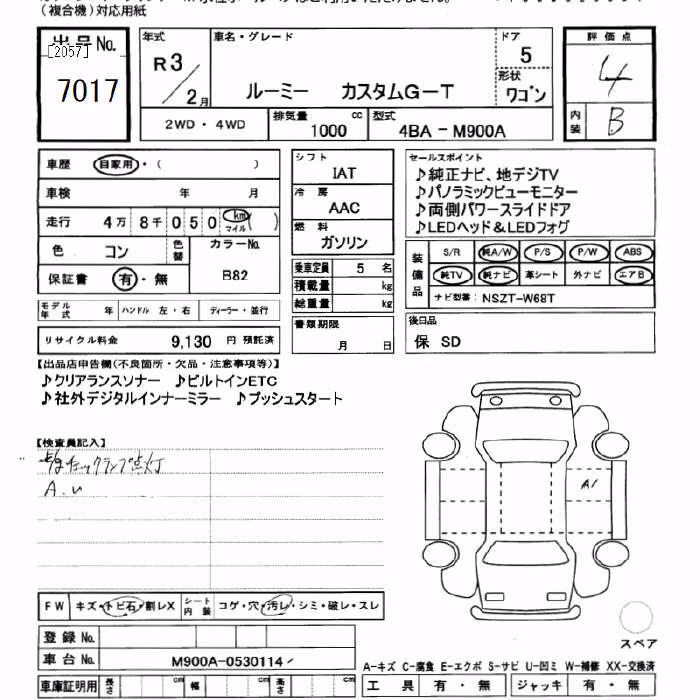 (複合機)対応用紙
出品No.
[2057]
7017
年式
R3/2月
車名・グレード
ルーミー カスタムG-T
ドア
5
形状
ワゴン
評価点
4
内装
B
2WD・4WD
排気量
1000 cc
型式
4BA-M900A
車歴 自家用・( )
車検 年 月
走行 4万 8千 0 5 0 km マイル ( )
色 コン
色替
カラーNo.
B82
保証書 有・無
モデル年式 年
ハンドル 左・右
ディーラー・並行
リサイクル料金 9,130 円 預託済
シフト
IAT
冷房
AAC
燃料
ガソリン
乗車定員 5 名
積載量 kg
総重量 kg
書類期限
月 日
セールスポイント
♪純正ナビ、地デジTV
♪パノラミックビューモニター
♪両側パワースライドドア
♪LEDヘッド&LEDフォグ
装備品
S/R 純A/W P/S P/W ABS
純TV 純ナビ 革シート 外ナビ エアB
ナビ型番: NSZT-W68T
後日品
保 SD
【出品店申告欄(不良箇所・欠品・注意事項等)】
♪クリアランスソナー ♪ビルトインETC
♪社外デジタルインナーミラー ♪プッシュスタート
【検査員記入】
チェックランプ点灯
A.U
A1
スペア
FW キズ・トビ石・割レX
シート内装 コゲ・穴・汚レ・シミ・破レ・スレ
登録No.
車台No. M900A-0530114
車庫証明用 長さ cm 幅 cm 高さ cm
A-キズ C-腐食 E-エクボ S-サビ U-凹ミ W-補修 XX-交換済
工具 有・無 ジャッキ 有・無